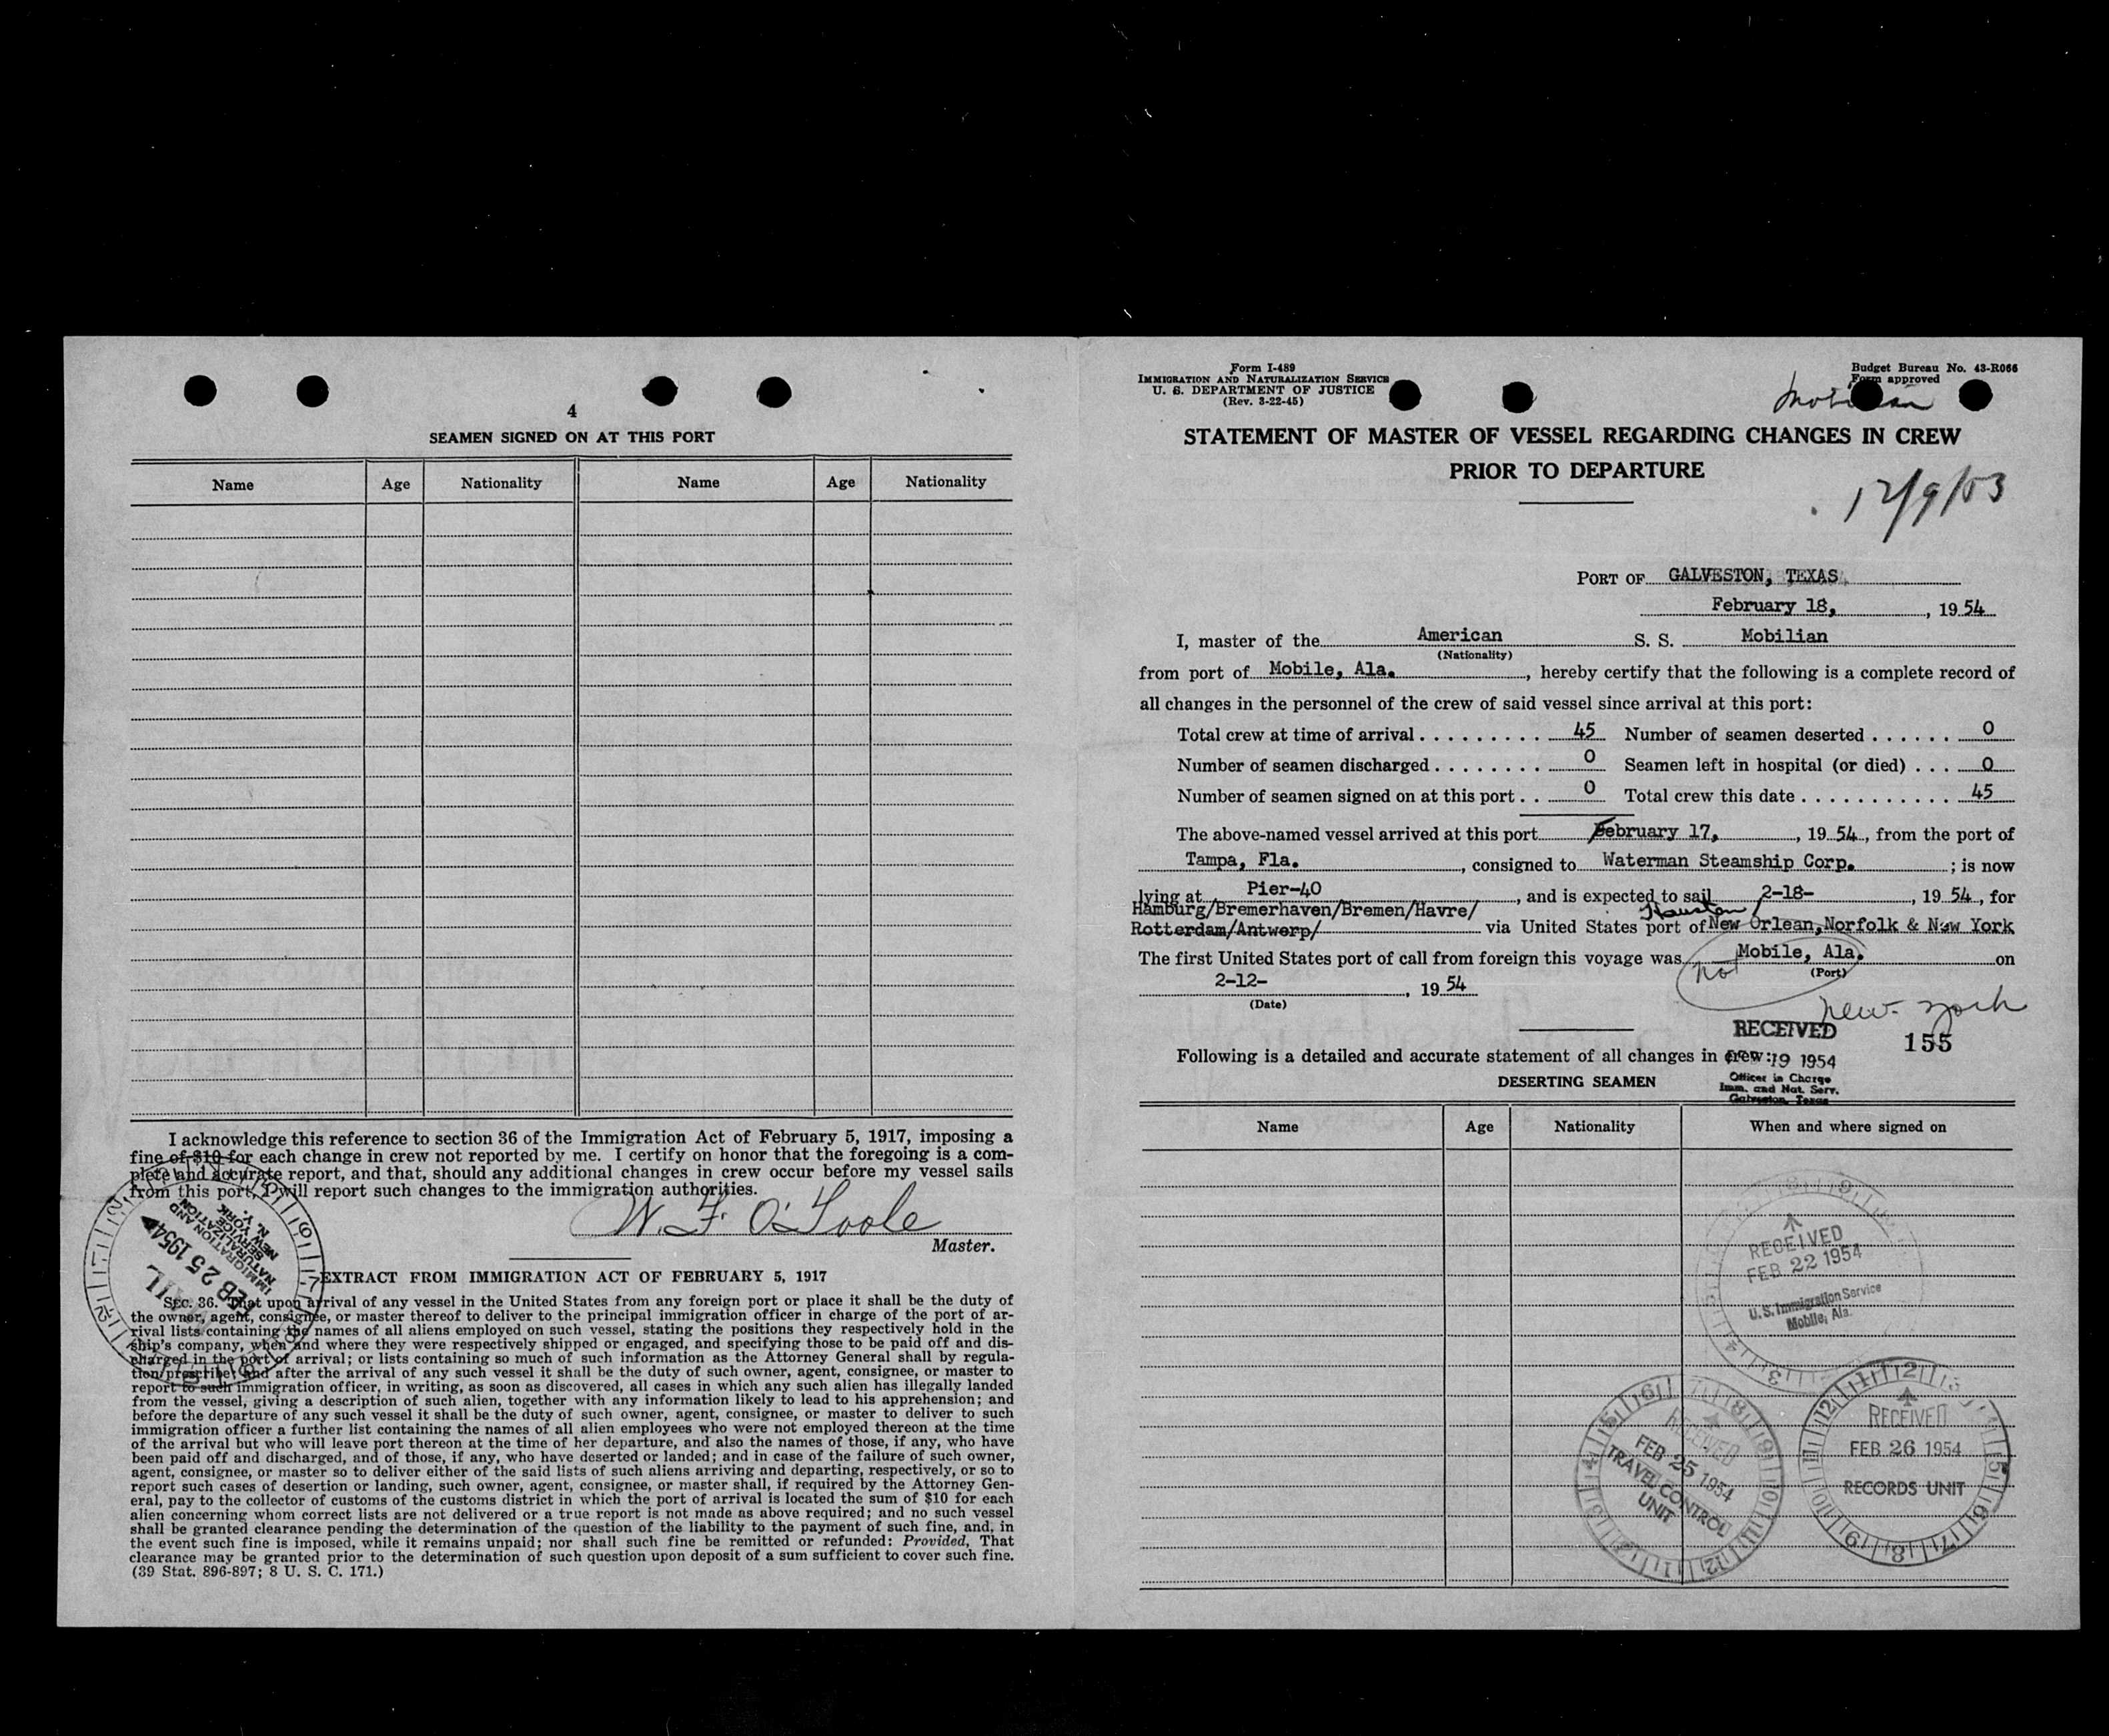 4
SEAMEN SIGNED ON AT THIS PORT
Name Age Nationality Name Age Nationality
I acknowledge this reference to section 36 of the Immigration Act of February 5, 1917, imposing a
fine of $10 for each change in crew not reported by me. I certify on honor that the foregoing is a com-
plete and accurate report, and that, should any additional changes in crew occur before my vessel sails
from this port, I will report such changes to the immigration authorities.
W. F. O'Toole
Master.
MAIL
FEB 25 1954
IMMIGRATION AND
NATURALIZATION
SERVICE
NEW YORK N. Y.
EXTRACT FROM IMMIGRATION ACT OF FEBRUARY 5, 1917
SEC. 36. That upon arrival of any vessel in the United States from any foreign port or place it shall be the duty of
the owner, agent, consignee, or master thereof to deliver to the principal immigration officer in charge of the port of ar-
rival lists containing the names of all aliens employed on such vessel, stating the positions they respectively hold in the
ship's company, when and where they were respectively shipped or engaged, and specifying those to be paid off and dis-
charged in the port of arrival; or lists containing so much of such information as the Attorney General shall by regula-
tion prescribe; and after the arrival of any such vessel it shall be the duty of such owner, agent, consignee, or master to
report to such immigration officer, in writing, as soon as discovered, all cases in which any such alien has illegally landed
from the vessel, giving a description of such alien, together with any information likely to lead to his apprehension; and
before the departure of any such vessel it shall be the duty of such owner, agent, consignee, or master to deliver to such
immigration officer a further list containing the names of all alien employees who were not employed thereon at the time
of the arrival but who will leave port thereon at the time of her departure, and also the names of those, if any, who have
been paid off and discharged, and of those, if any, who have deserted or landed; and in case of the failure of such owner,
agent, consignee, or master so to deliver either of the said lists of such aliens arriving and departing, respectively, or so to
report such cases of desertion or landing, such owner, agent, consignee, or master shall, if required by the Attorney Gen-
eral, pay to the collector of customs of the customs district in which the port of arrival is located the sum of $10 for each
alien concerning whom correct lists are not delivered or a true report is not made as above required; and no such vessel
shall be granted clearance pending the determination of the question of the liability to the payment of such fine, and, in
the event such fine is imposed, while it remains unpaid; nor shall such fine be remitted or refunded: Provided, That
clearance may be granted prior to the determination of such question upon deposit of a sum sufficient to cover such fine.
(39 Stat. 896-897; 8 U. S. C. 171.)
Form I-489
IMMIGRATION AND NATURALIZATION SERVICE
U. S. DEPARTMENT OF JUSTICE
(Rev. 3-22-45)
Budget Bureau No. 43-R066
Form approved
Mobilian
STATEMENT OF MASTER OF VESSEL REGARDING CHANGES IN CREW
PRIOR TO DEPARTURE
12/9/53
PORT OF GALVESTON, TEXAS
February 18, , 1954
I, master of the American S. S. Mobilian
(Nationality)
from port of Mobile, Ala. , hereby certify that the following is a complete record of
all changes in the personnel of the crew of said vessel since arrival at this port:
Total crew at time of arrival . . . . . . . . . 45 Number of seamen deserted . . . . . . 0
Number of seamen discharged . . . . . . . . 0 Seamen left in hospital (or died) . . . 0
Number of seamen signed on at this port . . 0 Total crew this date . . . . . . . . . . . 45
The above-named vessel arrived at this port February 17, , 1954, from the port of
Tampa, Fla. , consigned to Waterman Steamship Corp. ; is now
lying at Pier-40 , and is expected to sail 2-18- , 1954, for
Hamburg/Bremerhaven/Bremen/Havre/ Houston/
Rotterdam/Antwerp/ via United States port of New Orlean,Norfolk & New York
The first United States port of call from foreign this voyage was not Mobile, Ala. on
(Port)
2-12- , 1954
(Date)
New York
RECEIVED
155
Following is a detailed and accurate statement of all changes in crew:
19 1954
DESERTING SEAMEN
Officer in Charge
Imm. and Nat. Serv.
Galveston, Texas
Name Age Nationality When and where signed on
RECEIVED
FEB 22 1954
U. S. Immigration Service
Mobile, Ala.
RECEIVED
FEB 25 1954
TRAVEL CONTROL
UNIT
RECEIVED
FEB 26 1954
RECORDS UNIT